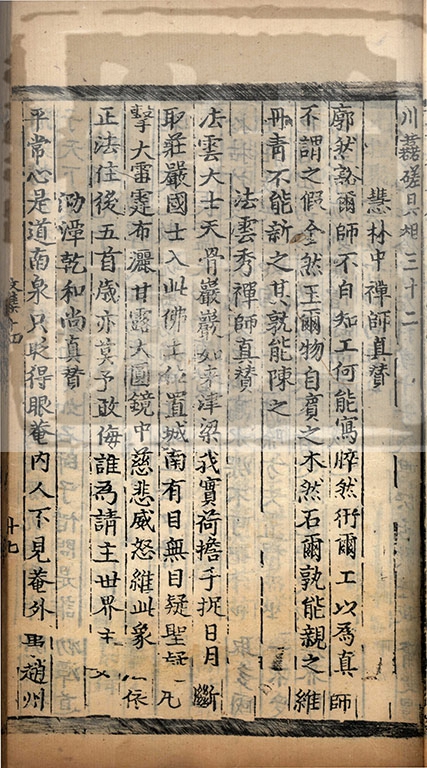 川蘤磋具相三十二
慧林中禪師真贊
廓然豁爾師不自知工何能寫脺然術爾工以為真師
不謂之假金然玉爾物自賓之木然石爾孰能親之維
丹青不能新之其孰能陳之
法雲秀禪師真贊
法雲大士天骨巖巖如來津梁我實荷擔手捉日月斷
取莊嚴國士入此佛其位置城南有目無目疑聖疑凡
擊大雷霆布灑甘露大圓鏡中慈悲威怒維此象依
正法住後五首歲亦莫予敢侮誰為請主世界主
泐潭乾和尚真贊
平常心是道南泉只眨得眼菴內人不見菴外事趙州